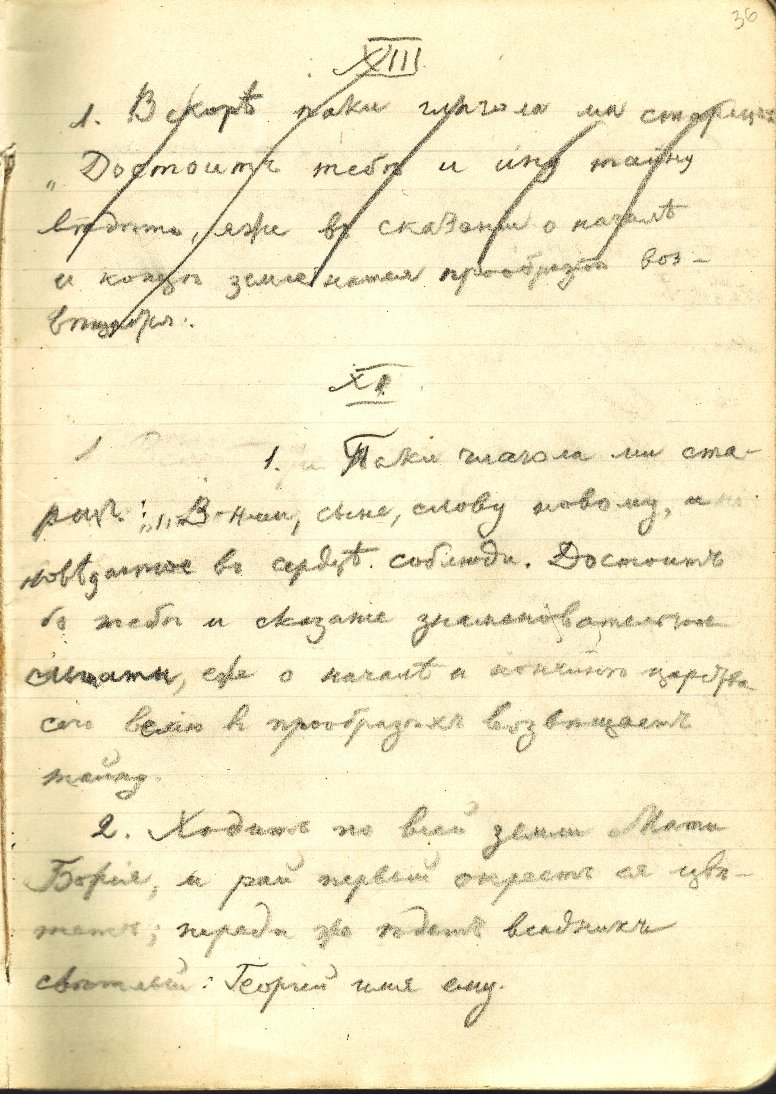 36
XIII
1. Вскорѣ паки глагола ми старецъ:
„Достоитъ тебѣ и ину тайну
вѣдати, яже въ сказании о началѣ
и концѣ земле
воз-
XI.
1. Паки глагола ми ста-
рецъ: „Вонми, сыне, слову новому, и
повѣдаемое въ сердцѣ соблюди. Достоитъ
бо тебѣ и сказание знаменовательное
слышати, еже о началѣ и кончинѣ царства
сего велию в прообразѣхъ возвѣщаетъ
тайну.
2. Ходитъ по всей земли Мати
Божия, и рай первый окрестъ ея цвѣ-
тетъ; переди же идетъ всадникъ
свѣтлый: Георгий имя ему.